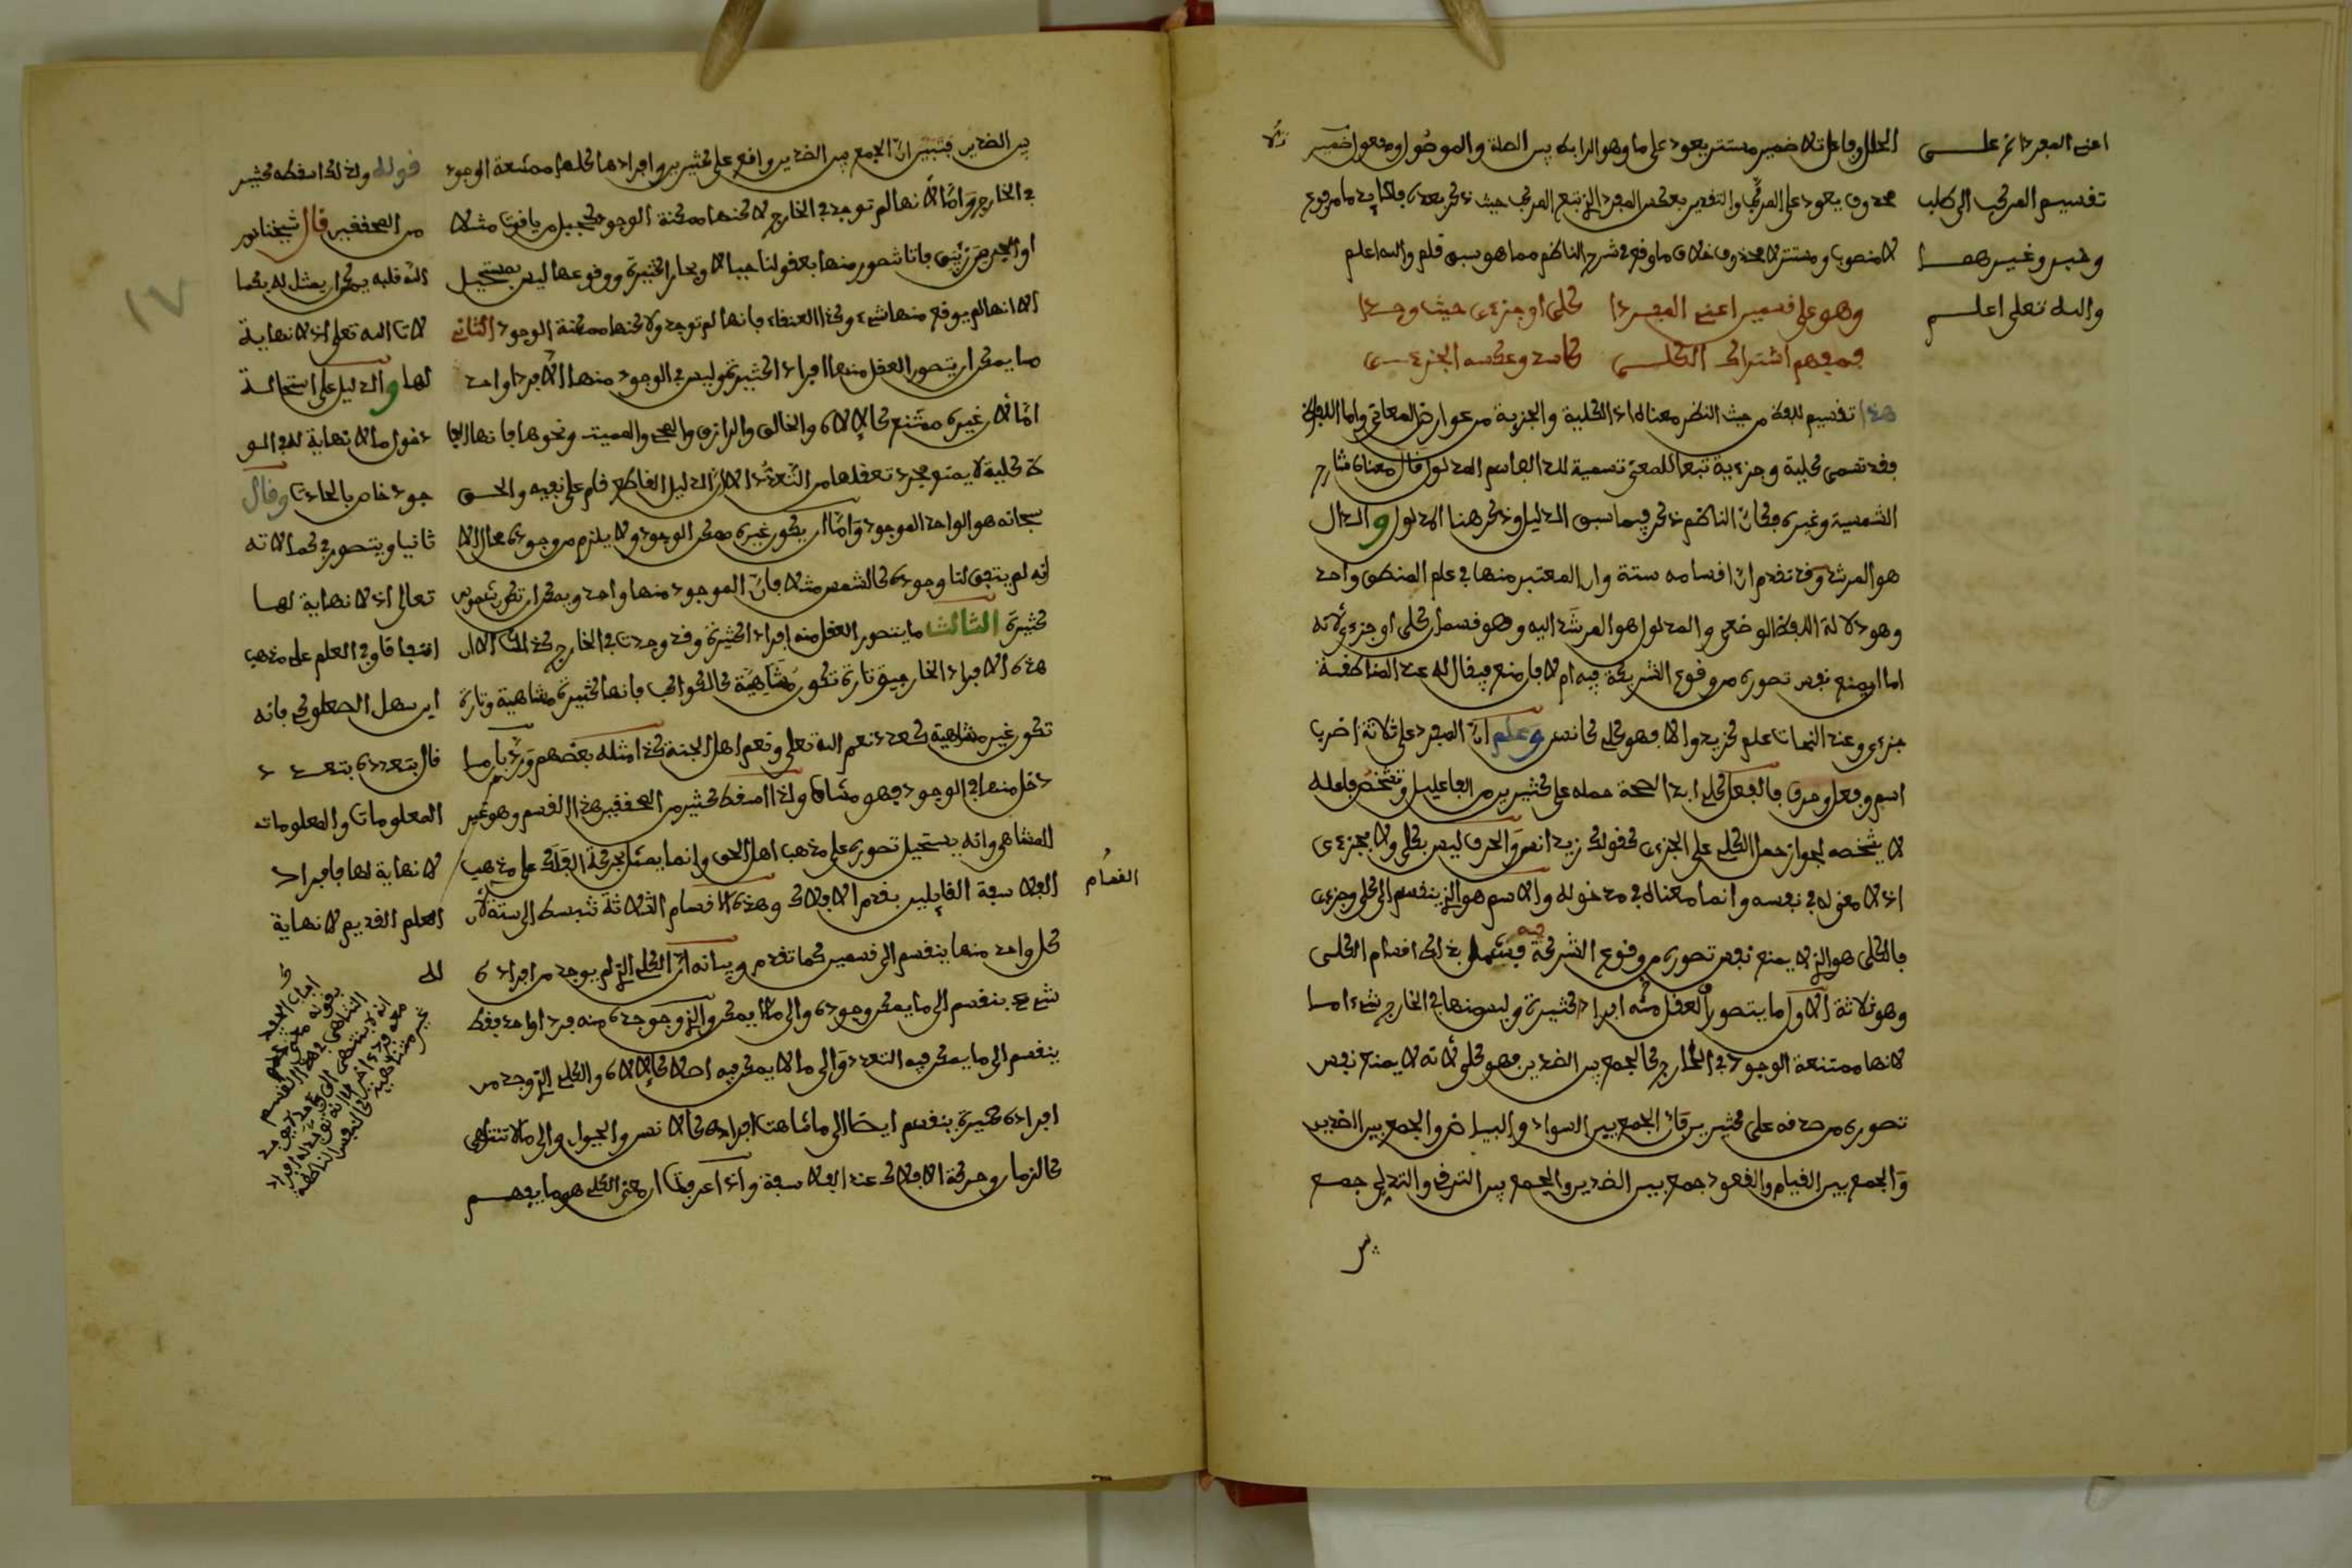 اعني المفرد اثم علـــى
تقسيم المركب الى طلب
وخبر وغيرهمـــا
والله تعلى اعلـــم
الحال وفاعل تلا ضمير مستتر يعود على ما وهو الرابط بين الصلة والموصول ومفعوله ضمير
محذوف يعود على المركب والتقدير بعكس المفرد الذي تبع المركب حيث ذكر بعده
لا منصوب ومستتر لا محذوف خلاف ما وقع في شرح الناظم مما هو سبق قلم والله اعلم
وهو على قسمين اعني المفـــردا كلي او جزءى حيث وجـــدا
فمفهم اشتراك الكلـــي كاسد وعكسه الجزءـــى
هذا تقسيم للفظ من حيث النظر معناه اذ الكلية والجزية من عوارض المعاني واما اللفظ
فقد تسمى كلية وجزءية تبعا للمعنى تسمية للدال باسم المدلول قال معناه شارح
الشمسية وغيره فكان الناظم ذكر فيما سبق الدليل وذكر هنا المدلول والدال
هو المرشد وقد تقدم ان اقسامه ستة وان المعتبر منها في علم المنطق واحد
وهو دلالة اللفظ الوضعي والمدلول هو المرشد اليه وهو قسمان كلي او جزءى لانه
اما ان يمنع نفس تصوره من وقوع الشركة فيه ام لا فان منع فيقال له عند المناطقة
جزءى وعند النحات علم كزيد والا فهو كلي كانس وعلم ان المفرد على ثلاثة اضرب
اسم وفعل وحرف فالفعل كلي ابدا لصحة حمله على كثيرين من الفاعلين وتشخص فاعله
لا يشخصه لجواز حمل الكلي على الجزءى كقولك زيد انس والحرف ليس بكلي ولا بجزءى
اذ لا معنى له في نفسه وانما معناه في مدخوله والاسم هو الذي ينقسم الى كلي وجزءى
فالكلي هو الذي لا يمنع نفس تصوره من وقوع الشركة فيه فشمل بذلك اقسام الكلي
وهو ثلاثة الاول ما يتصور العقل منه افراد كثيرة وليس منها في الخارج شيء اما
لانها ممتنعة الوجود في الخارج كالجمع بين الضدين فهو كلي لانه لا يمنع نفس
تصوره من صدقه على كثيرين فان الجمع بين السواد والبياض والجمع بين الضدين
والجمع بين القيام والقعود جمع بين الضدين والجمع بين الترقي والتدلي جمع
بين
بين الضدين فتبين ان الجمع بين الضدين واقع على كثيرين وافرادها كلها ممتنعة الوجود
في الخارج واما لانها لم توجد في الخارج لاكنها ممكنة الوجود كجبل من ياقوت مثلا
او بحر من زئبق فانا نتصور منها بعقولنا جبالا وبحارا كثيرة ووقوعها ليس بمستحيل
الا انها لم يوقع منها شيء وكذا العنقاء فانها لم توجد ولاكنها ممكنة الوجود الثاني
ما يمكن ان يتصور العقل منها افراد الكثير ثم وليس في الوجود منها الا فردا واحد
اما لان غيره ممتنع كالالاه والخالق والرازق والمحي والمميت ونحوها فانها الفا
ظ كلية لا يمنع مجرد تعقلها من التعدد الا ان الدليل القاطع قام على نفيه والحق
سبحانه هو الواحد الموجود واما ان يكون غيره ممكن الوجود ولا يلزم من وجوده محال الا
انه لم يتفق لنا وجوده كالشمس مثلا فان الموجود منها واحد ويمكن ان تكون شموس
كثيرة الثالث ما يتصور العقل منه افراد الكثيرة وقد وجدت في الخارج كذلك الا ان
هذه الافراد الخارجية تارة تكون متناهية كالكواكب فانها كثيرة متناهية وتارة
تكون غير متناهية كعدد نعم الله تعلى ونعم اهل الجنة كذا مثله بعضهم ورد بان ما
دخل منها في الوجود فهو متناه ولذا اسقط كثير من المحققين هذا القسم وهو غير
المتناهي وانه يستحيل تصوره على مذهب اهل الحق وانما يمثل بحركة الفلك على مذهب
الفلاسفة القايلين بقدم الافلاك وهذه الاقسام الثلاثة تنبسط الى ستة لان
كل واحد منها ينقسم الى قسمين كما تقدم وبيانه ان الكلي الذي لم يوجد من افراده
شيء ينقسم الى ما يمكن وجوده والى ما لا يمكن والذي وجد منه فردا واحد فقط
ينقسم الى ما يمكن فيه التعدد والى ما لا يمكن فيه اصلا كالالاه والكلي الذي وجد من
افراده كثيرة ينقسم ايضا الى ما تناهت افراده كالانس والحيوان والى ما لا تتناهى
كالزمان وحركة الافلاك عند الفلاسفة واذا عرفت ان معنى الكلي هو ما يفهـــم
قوله ولذلك اسقطه كثير
من المحققين قال شيخنا نور
الله قلبه يمكن ان يمثل له بكما
لات الله تعلى اذ لا نهاية
لها والدليل على استحالـة
دخول ما لا نهاية له في الو
جود خاص بالحادث وقال
ثانيا ويتصور في كمالاته
تعالى اذ لا نهاية لهـا
اتفاقا وفي العلم على مذهب
ابي سهل الصعلوكي فانه
قال بتعدده بتعـــدد
المعلومات والمعلومات
لا نهاية لها فافراد
العلم القديم لا نهاية
له
١٧